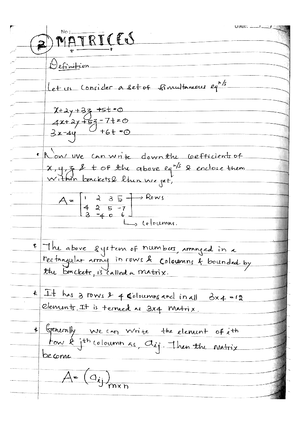 ② MATRICES
Definition
Let us consider a set of simultaneous eqⁿ/s
x+2y+3z+5t=0
4x+2y+5z-7t=0
3x-4y +6t=0
Now we can write down the coefficients of
x, y, z & t of the above eqⁿ/s & enclose them
within brackets & then we get,
A = [ 1 2 3 5 → Rows
4 2 5 -7
3 -4 0 6 ]
↳ coloumns.
The above system of numbers, arranged in a
rectangular array in rows & coloumns & bounded by
the brackets, is called a matrix.
It has 3 rows & 4 coloumns and in all 3x4=12
elements. It is termed as 3x4 matrix.
Generally we can write the element of ith
row & jth coloumn as, aij. Then the matrix
become
A = (aij) mxn